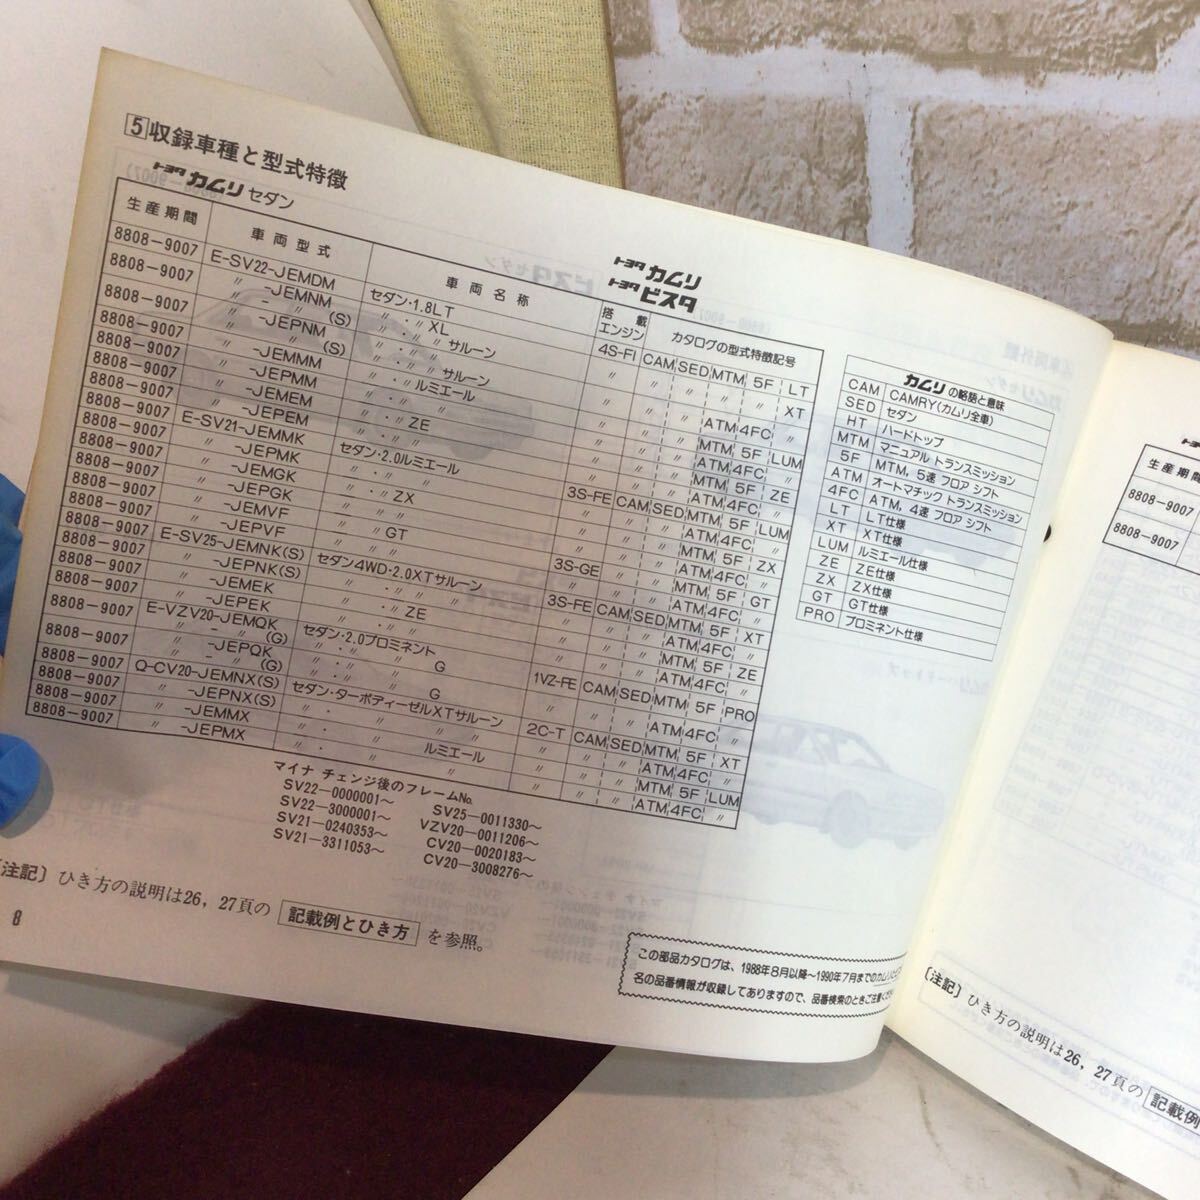 5 収録車種と型式特徴
トヨタ カムリ セダン
トヨタ カムリ
トヨタ ビスタ
生産期間 車両型式 車両名称 搭載エンジン カタログの型式特徴記号
8808-9007 E-SV22-JEMDM セダン・1.8LT 4S-FI CAM SED MTM 5F LT
8808-9007 〃 -JEMNM 〃・〃XL
8808-9007 〃 - 〃 (S) 〃・〃 サルーン
8808-9007 〃 -JEPNM
〃 (S) 〃・〃 サルーン
8808-9007 〃 -JEMMM 〃・〃 ルミエール
8808-9007 〃 -JEPMM
8808-9007 〃 -JEMEM 〃・〃ZE
8808-9007 〃 -JEPEM
8808-9007 E-SV21-JEMMK セダン・2.0ルミエール 3S-FE CAM SED MTM 5F LUM
8808-9007 〃 -JEPMK
8808-9007 〃 -JEMGK 〃・〃ZX
8808-9007 〃 -JEPGK
8808-9007 〃 -JEMVF 〃・〃GT 3S-GE
8808-9007 〃 -JEPVF
8808-9007 E-SV25-JEMNK(S) セダン4WD・2.0XTサルーン 3S-FE CAM SED MTM 5F XT
8808-9007 〃 -JEPNK(S)
8808-9007 〃 -JEMEK 〃・〃ZE
8808-9007 〃 -JEPEK
8808-9007 E-VZV20-JEMQK セダン・2.0プロミネント 1VZ-FE CAM SED MTM 5F PRO
〃 - 〃 (G) 〃・〃 G
8808-9007 〃 -JEPQK
〃 (G) 〃・〃 G
8808-9007 Q-CV20-JEMNX(S) セダン・ターボディーゼルXTサルーン 2C-T CAM SED MTM 5F XT
8808-9007 〃 -JEPNX(S)
8808-9007 〃 -JEMMX 〃・〃 ルミエール
8808-9007 〃 -JEPMX
カムリ の略語と意味
CAM CAMRY(カムリ全車)
SED セダン
HT ハードトップ
MTM マニュアル トランスミッション
5F MTM, 5速 フロア シフト
ATM オートマチック トランスミッション
4FC ATM, 4速 フロア シフト
LT LT仕様
XT XT仕様
LUM ルミエール仕様
ZE ZE仕様
ZX ZX仕様
GT GT仕様
PRO プロミネント仕様
マイナ チェンジ後のフレームNo.
SV22—0000001〜 SV25—0011330〜
SV22—3000001〜 VZV20—0011206〜
SV21—0240353〜 CV20—0020183〜
SV21—3311053〜 CV20—3008276〜
〔注記〕ひき方の説明は26, 27頁の 記載例とひき方 を参照。
8
この部品カタログは、1988年8月以降〜1990年7月までのカムリ
名の品番情報が収録してありますので、品番検索のときご注意くだ
生産期間
8808-9007
8808-9007
〔注記〕ひき方の説明は26, 27頁の 記載例